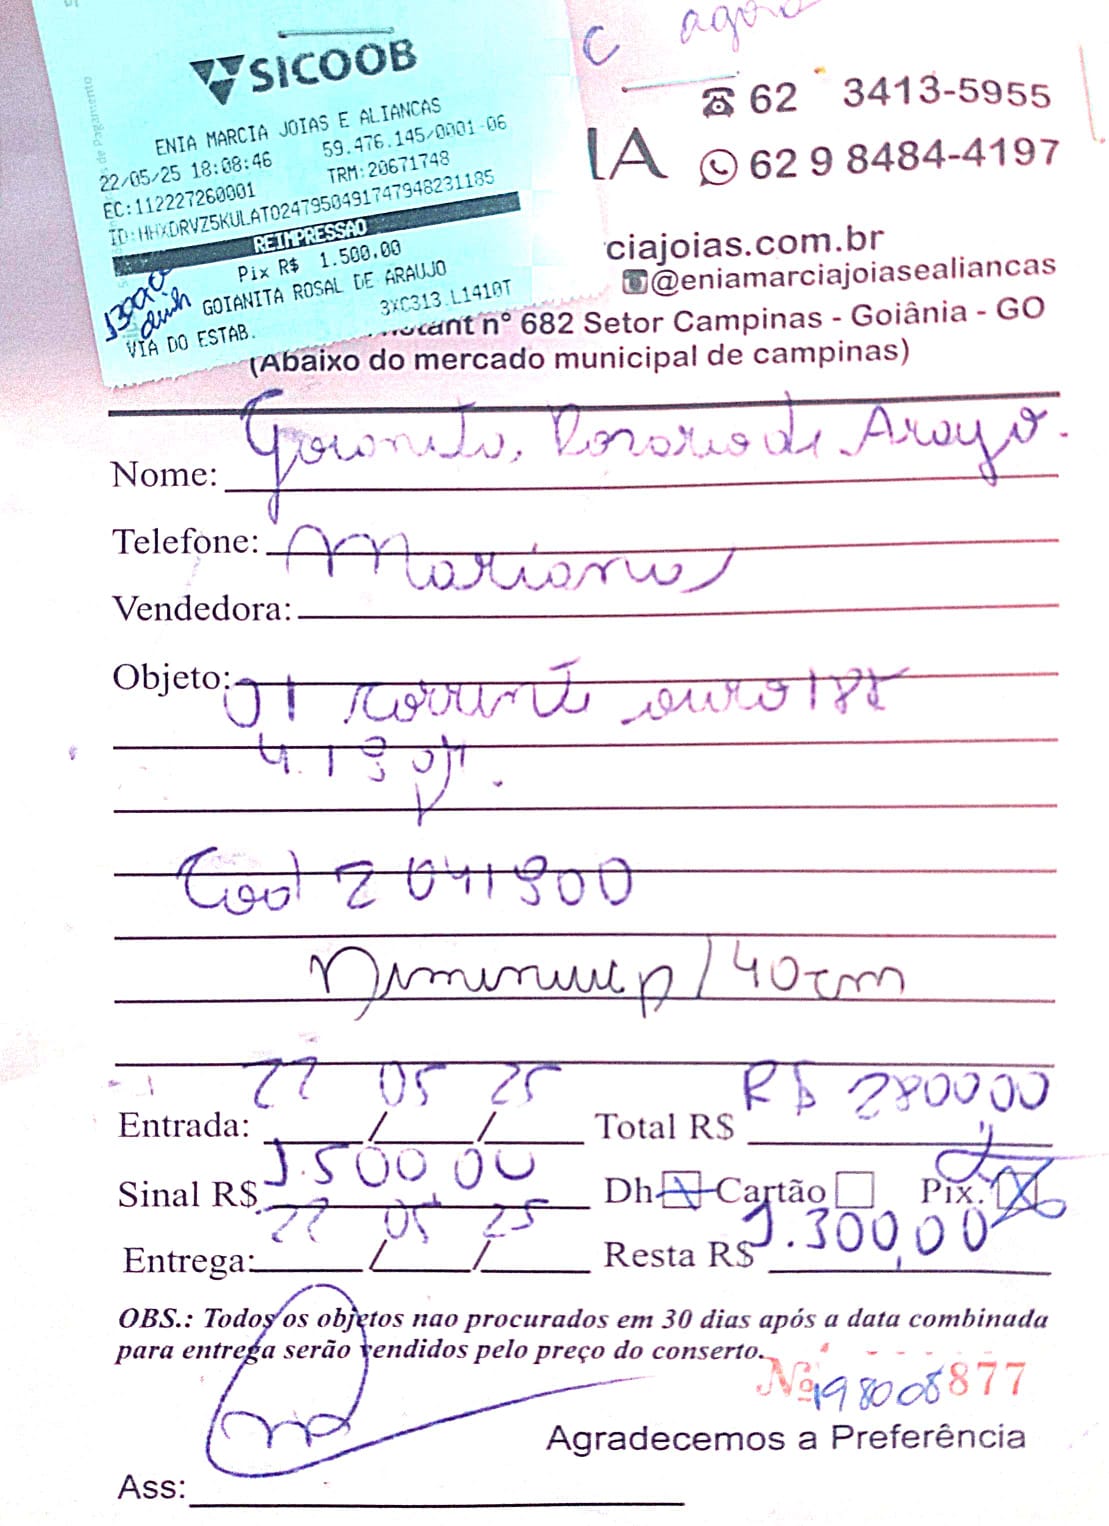 SICOOB
ENIA MARCIA JOIAS E ALIANCAS
22/05/25 18:08:46 59.476.145/0001-06
EC:112227260001 TRM:20671748
ID:HHXDRVZ5KULAT02479504917479482311​85
REIMPRESSAO
Pix R$ 1.500,00
GOIANITA ROSAL DE ARAUJO
3XC313.L1410T
VIA DO ESTAB.
1300,00
dinh
C agora
62 3413-5955
IA 62 9 8484-4197
ciajoias.com.br
@eniamarciajoiasealiancas
nº 682 Setor Campinas - Goiânia - GO
(Abaixo do mercado municipal de campinas)
Nome: Goianita Rosario de Araujo.
Telefone:
Mariana
Vendedora:
Objeto: 01 corrente ouro 18k
4.190g.
Cod 2041900
Diminuir p/ 40cm
Entrada: 22/05/25 Total R$ R$ 280000
Sinal R$ 1.500 00 Dh Cartão Pix.
Entrega: 22/05/25 Resta R$ 1.300,00
OBS.: Todos os objetos nao procurados em 30 dias após a data combinada
para entrega serão vendidos pelo preço do conserto.
Nº 198008877
Agradecemos a Preferência
Ass: